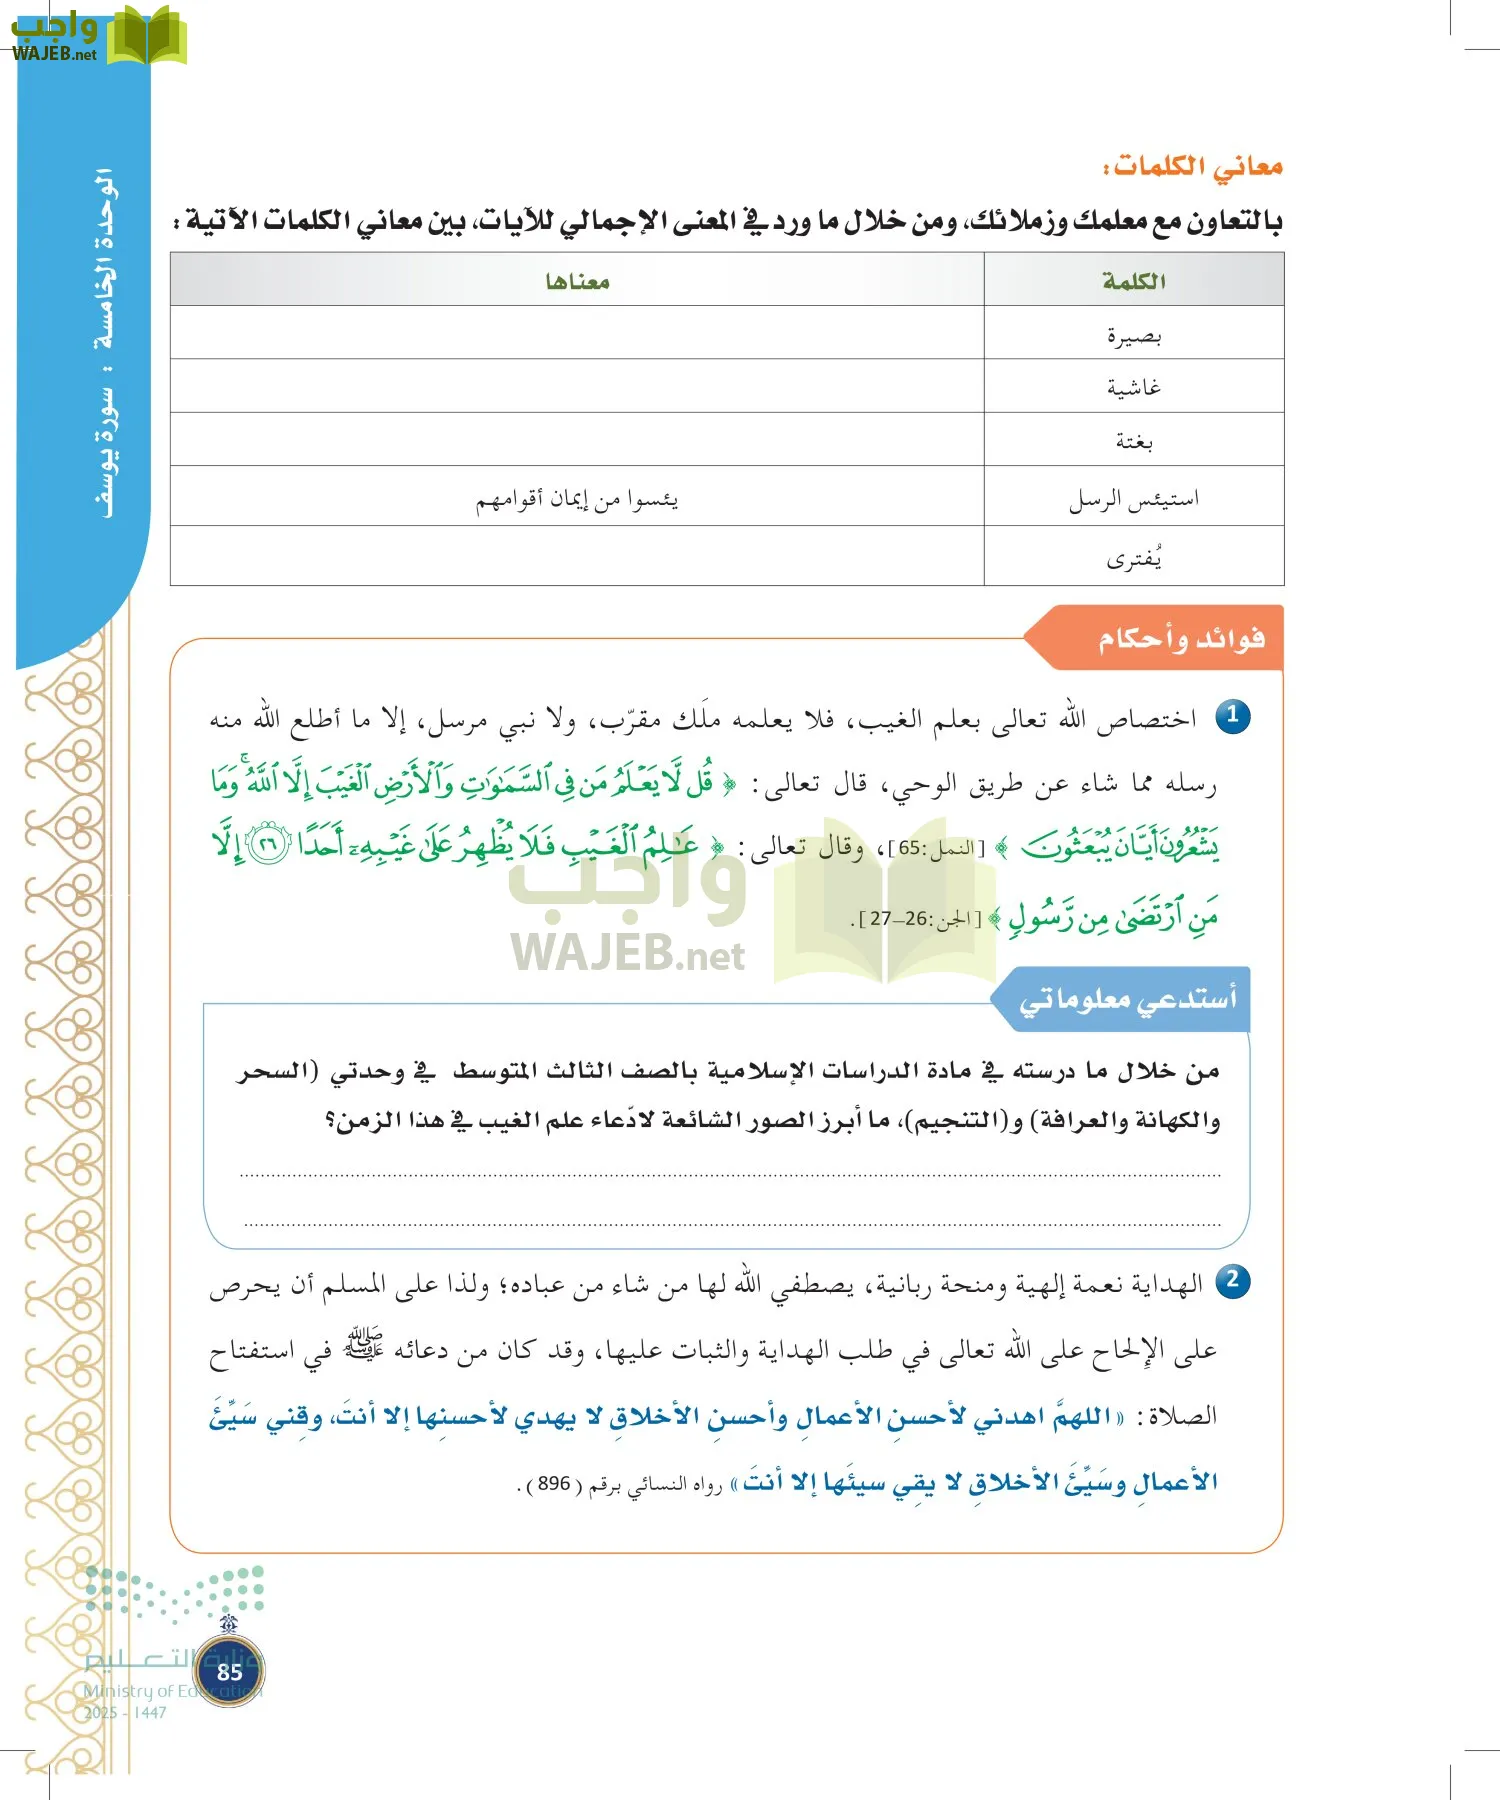 واجب
WAJEB.net
الوحدة الخامسة : سورة يوسف
معاني الكلمات:
بالتعاون مع معلمك وزملائك، ومن خلال ما ورد في المعنى الإجمالي للآيات، بين معاني الكلمات الآتية :
الكلمة معناها
بصيرة
غاشية
بغتة
استيئس الرسل يئسوا من إيمان أقوامهم
يُفترى
فوائد وأحكام
1 اختصاص الله تعالى بعلم الغيب، فلا يعلمه ملَك مقرّب، ولا نبي مرسل، إلا ما أطلع الله منه
رسله مما شاء عن طريق الوحي، قال تعالى: ﴿ قُل لَّا يَعْلَمُ مَن فِي السَّمَٰوَٰتِ وَالْأَرْضِ الْغَيْبَ إِلَّا اللَّهُ ۚ وَمَا
يَشْعُرُونَ أَيَّانَ يُبْعَثُونَ ﴾ [النمل:65]، وقال تعالى: ﴿ عَٰلِمُ الْغَيْبِ فَلَا يُظْهِرُ عَلَىٰ غَيْبِهِۦٓ أَحَدًا ٢٦ إِلَّا
مَنِ ارْتَضَىٰ مِن رَّسُولٍ ﴾ [الجن:26–27].
واجب
WAJEB.net
أستدعي معلوماتي
من خلال ما درسته في مادة الدراسات الإسلامية بالصف الثالث المتوسط في وحدتي (السحر
والكهانة والعرافة) و(التنجيم)، ما أبرز الصور الشائعة لادّعاء علم الغيب في هذا الزمن؟
2 الهداية نعمة إلهية ومنحة ربانية، يصطفي الله لها من شاء من عباده؛ ولذا على المسلم أن يحرص
على الإلحاح على الله تعالى في طلب الهداية والثبات عليها، وقد كان من دعائه ﷺ في استفتاح
الصلاة: «اللهمَّ اهدني لأحسنِ الأعمالِ وأحسنِ الأخلاقِ لا يهدي لأحسنِها إلا أنتَ، وقِني سَيِّئَ
الأعمالِ وسَيِّئَ الأخلاقِ لا يقِي سيئَها إلا أنتَ» رواه النسائي برقم (896).
وزارة التعليم
Ministry of Education
2025 - 1447
85